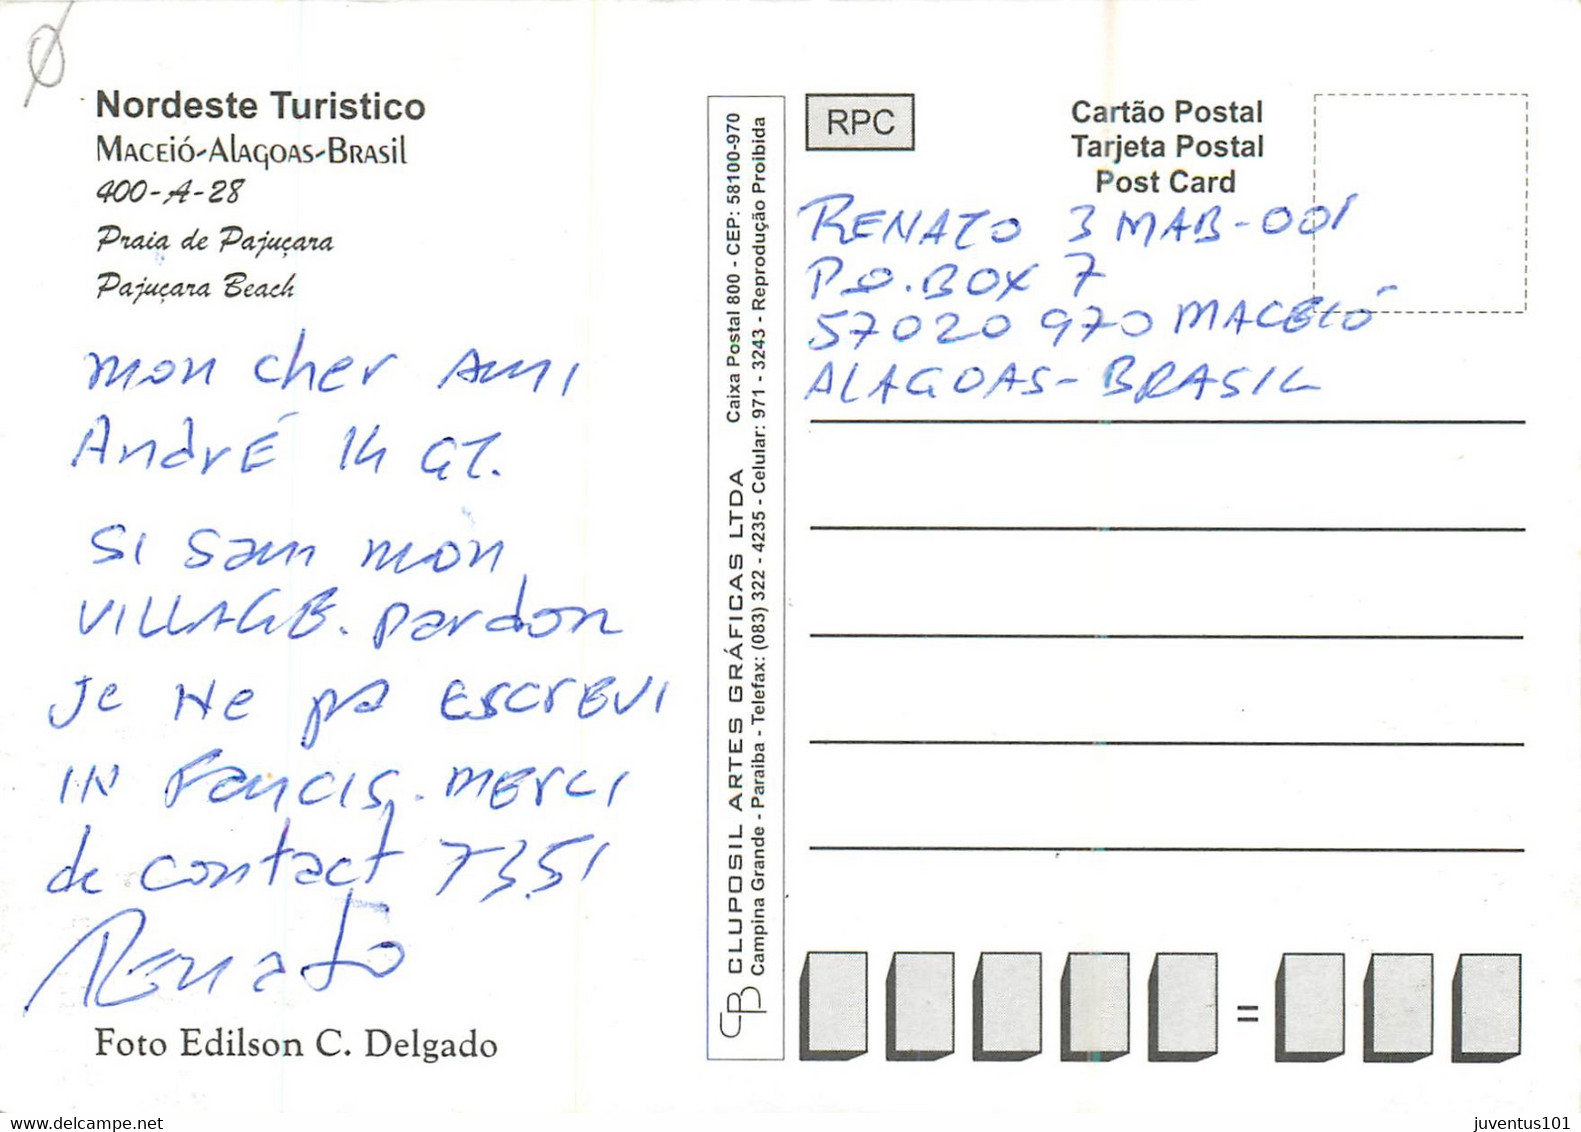 Nordeste Turistico
Maceió-Alagoas-Brasil
400-A-28
Praia de Pajuçara
Pajuçara Beach
mon cher Ami
André 14 AT.
Si sam mon
VILLAGE. pardon
Je Ne pa ESCREVI
IN Fancis. MERCI
de contact 73.51
Renato
Foto Edilson C. Delgado
CLUPOSIL ARTES GRÁFICAS LTDA Caixa Postal 800 - CEP: 58100-970
Campina Grande - Paraiba - Telefax: (083) 322 - 4235 - Celular: 971 - 3243 - Reprodução Proibida
RPC
Cartão Postal
Tarjeta Postal
Post Card
RENATO 3 MAB-001
P.O. BOX 7
57020 970 MACEIÓ
ALAGOAS - BRASIL
=
delcampe.net
juventus101